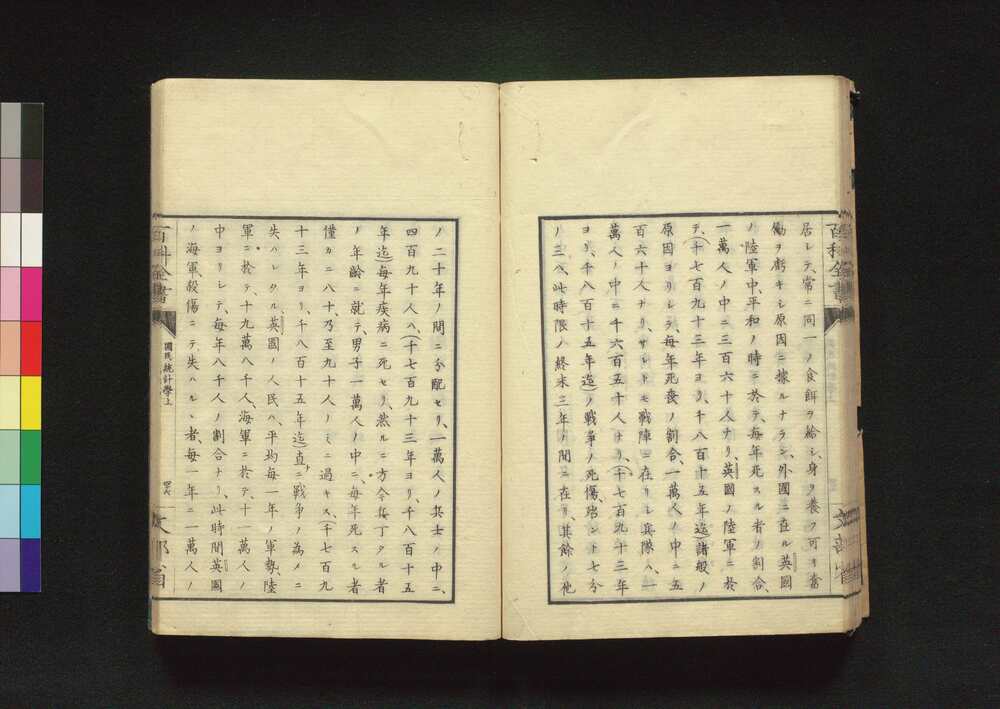 居レテ、常ニ同一ノ食餌ヲ給シ、身ヲ養フ可キ當
ヲ虧キシ原因ニ據ルナラン、外國ニ在ル英國
ノ陸軍中、平和ノ時ニ於テ、毎年死スル者ノ割合、
一萬人ノ中ニ三百六十人ナリ、英國ノ陸軍ニ於
テ、(千七百九十三年ヨリ、千八百十五年迄)諸般ノ
原因ヨリシテ、毎年死喪ノ割合、一萬人ノ中ニ五
百六十人ナリ、サレドモ戰陣ニ在リシ兵隊ハ、一
萬人ノ中ニ千六百五十人ナリ、(千七百九十三年
ヨリ、千八百十五年迄)ノ戰爭ノ死傷、殆ント七分
ノ三ハ、此時限ノ終末三年ノ間ニ在リ、其餘ノ他
ノ二十年ノ間ニ分配セリ、一萬人ノ兵士ノ中ニ、
四百九十人ハ、(千七百九十三年ヨリ、千八百十五
年迄)毎年疾病ニ死セリ、然ルニ方今兵丁タル者
ノ年齢ニ就テ、男子一萬人ノ中ニ、毎年死スル者
僅カニ八十、乃至九十人ノミニ過キス、千七百九
十三年ヨリ、千八百十五年迄、直ニ戰爭ノ為メニ
失ハレタル、英國ノ人民ハ、平均毎一年ノ軍勢、陸
軍ニ於テ、十九萬八千人、海軍ニ於テ、十一萬人ノ
中ヨリシテ、毎年八千人ノ割合ナリ、此時間英國
ノ海軍、殺傷ニテ、失ハルヽ者、毎一年ニ一萬人ノ
百科全書
國民統計學上
文部省